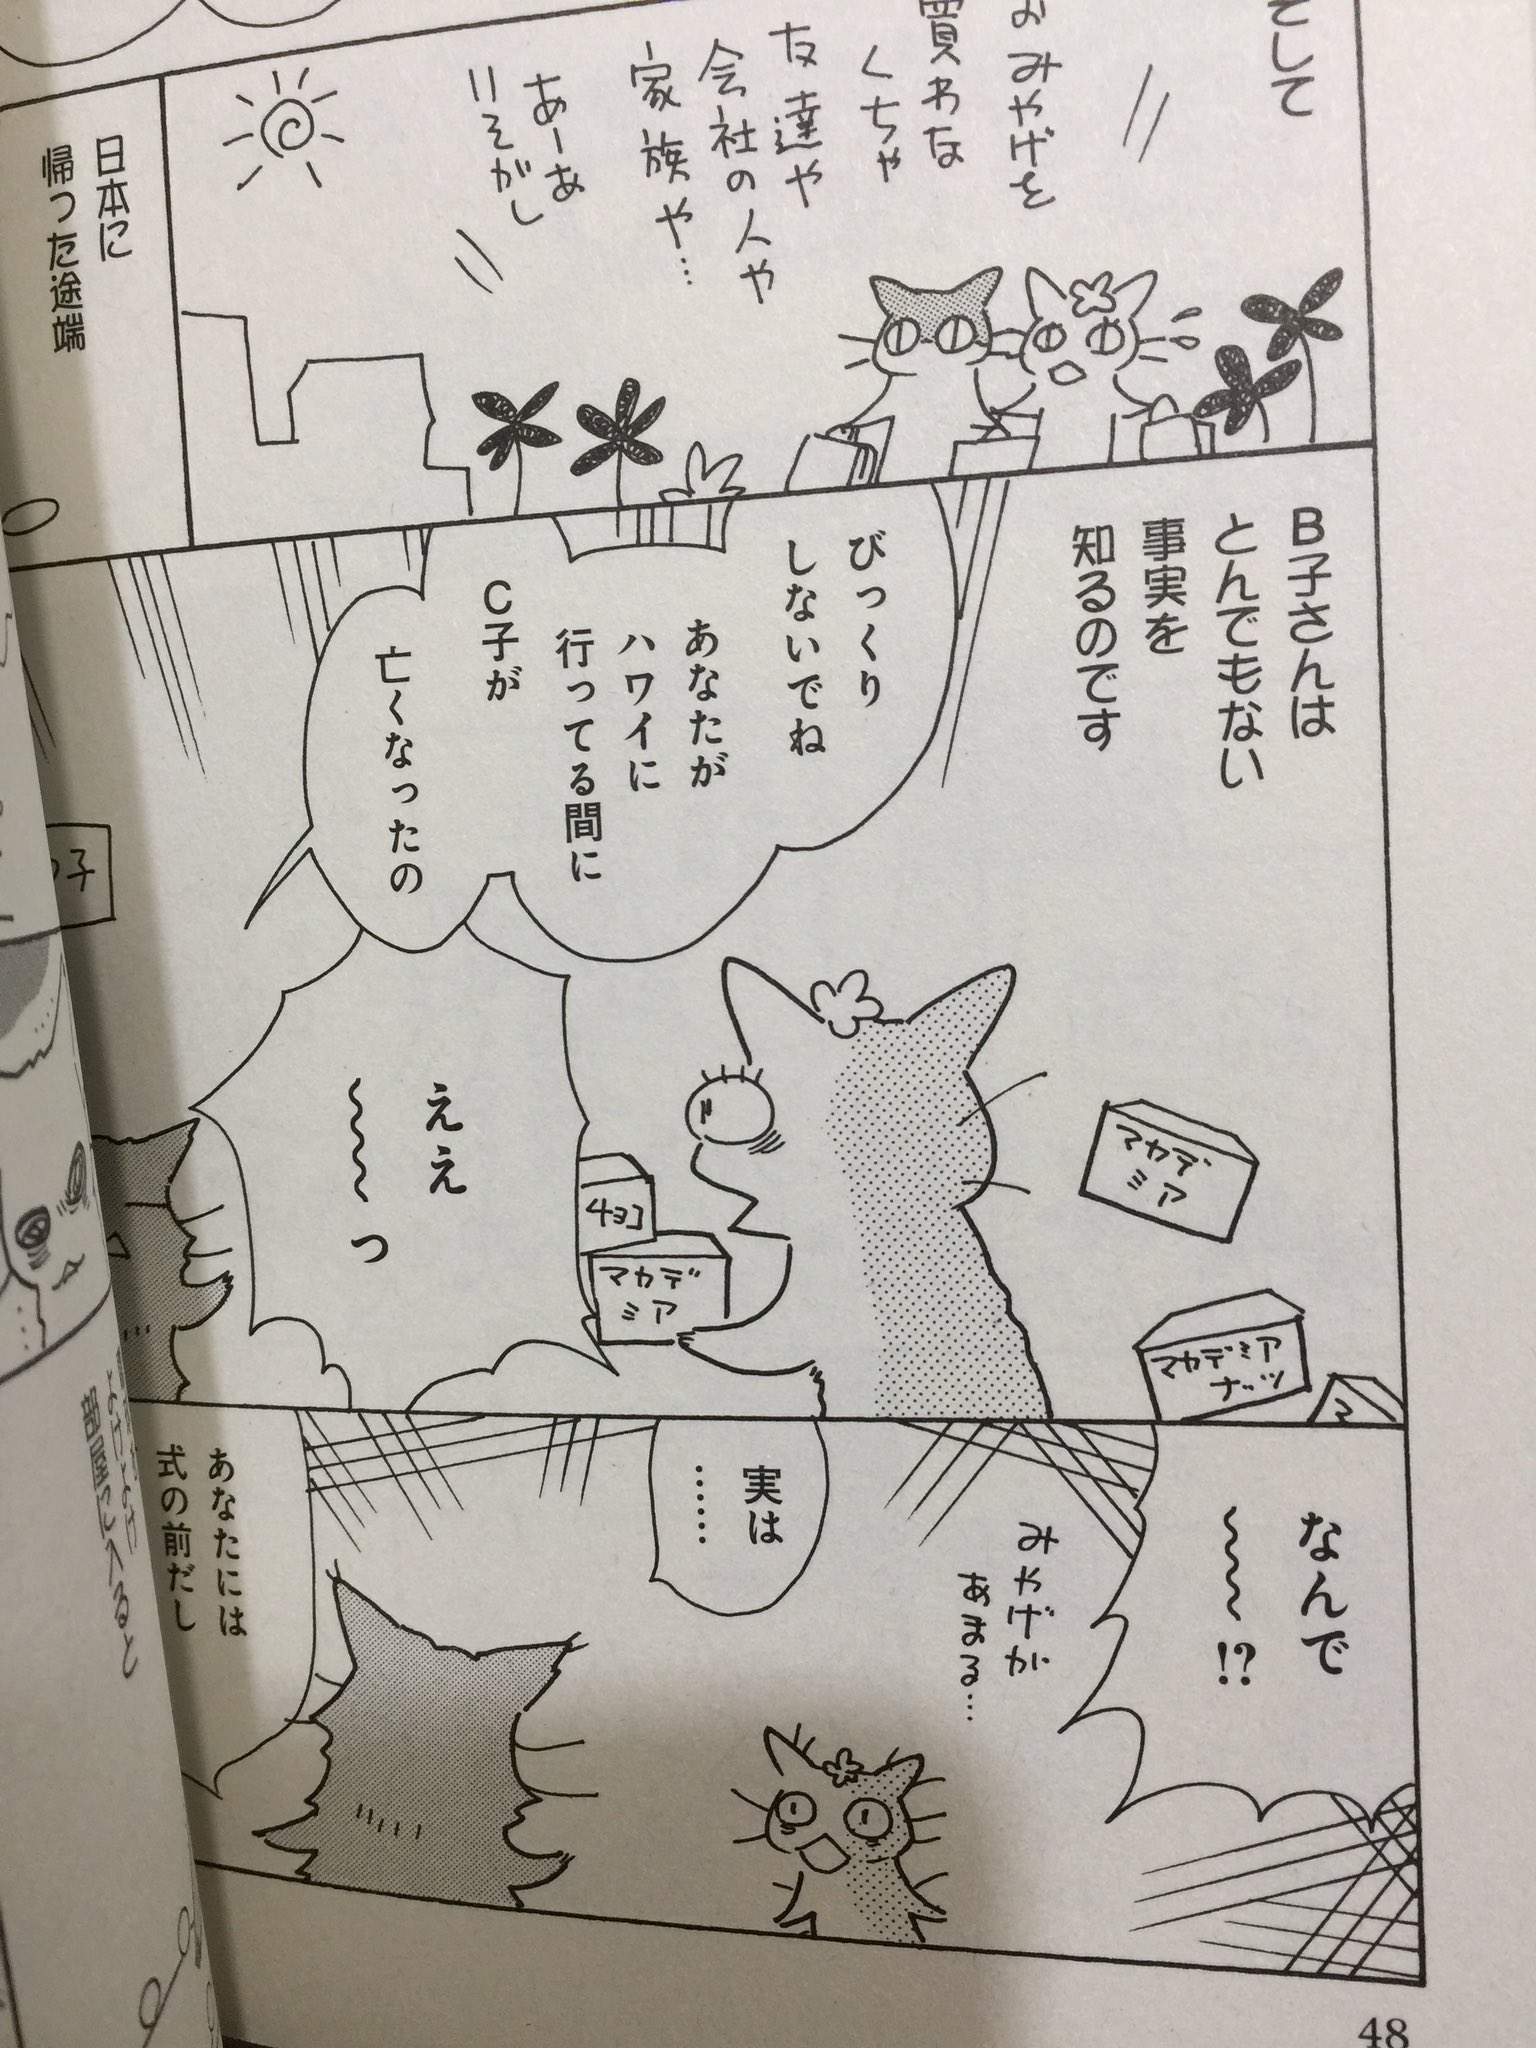 そして
おみやげを
買わな
くちゃ
友達や
会社の人や
家族や…
あーあ
いそがし
日本に
帰った途端
B子さんは
とんでもない
事実を
知るのです
びっくり
しないでね
あなたが
ハワイに
行ってる間に
C子が
亡くなったの
マカデ
ミア
マカデミア
ナッツ
マ
チョコ
マカデ
ミア
ええ
〜〜〜っ
なんで
〜〜〜!?
みやげが
あまる…
実は
……
あなたには
式の前だし
に入ると
48